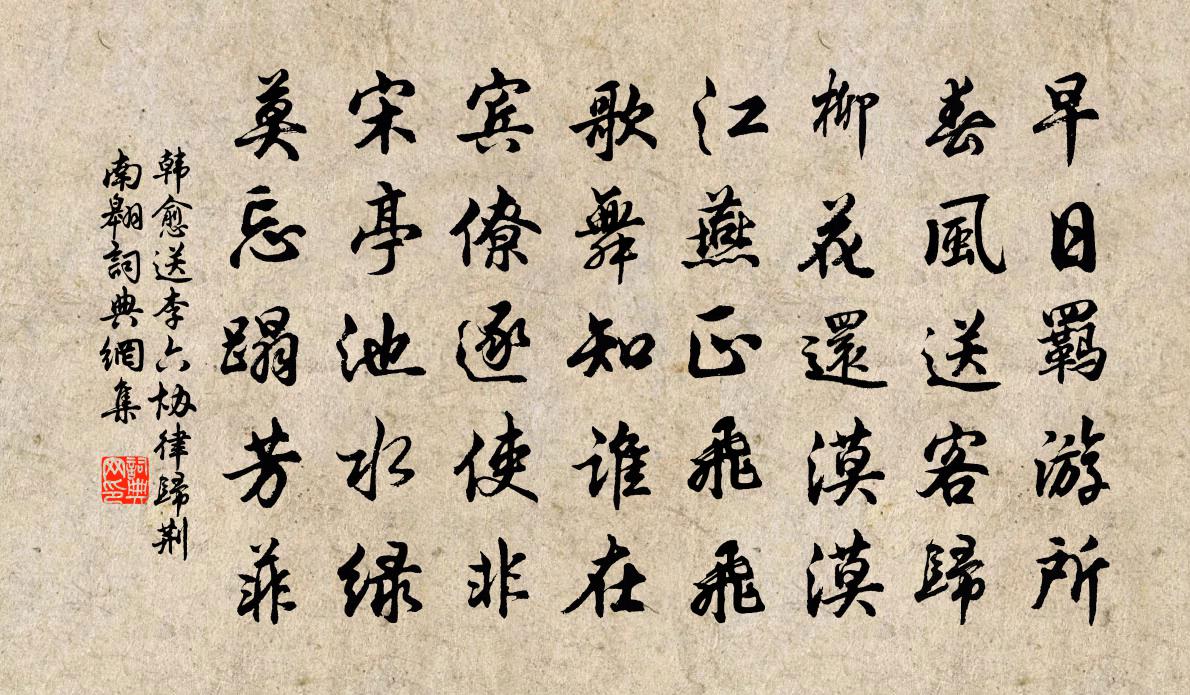 早日羈游所
春風送客歸
柳花還漠漠
江燕正飛飛
歌舞知谁在
宾僚逐使非
宋亭池水绿
莫忘蹋芳菲
韩愈送李六协律歸荆
南翱詞典網集
詞典网印